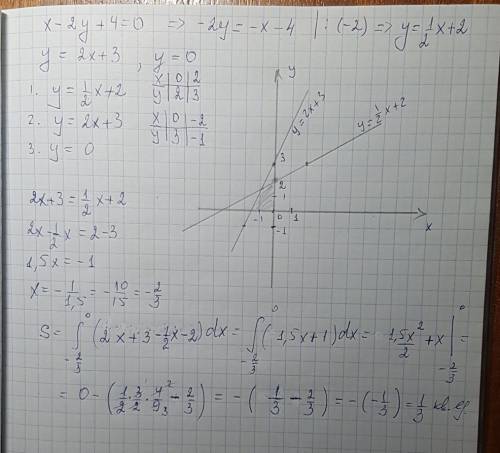 x - 2y + 4 = 0 => -2y = -x - 4 | : (-2) => y = 1/2 x + 2
y = 2x + 3 , y = 0
1. y = 1/2 x + 2
x | 0 | 2
y | 2 | 3
2. y = 2x + 3
x | 0 | -2
y | 3 | -1
3. y = 0
y
y = 2x + 3
y = 1/2 x + 2
3
2
1
-1 0 1
-1
x
2x + 3 = 1/2 x + 2
2x - 1/2 x = 2 - 3
1,5x = -1
x = - 1/1,5 = - 10/15 = - 2/3
S = ∫_{-2/3}^{0} (2x + 3 - 1/2 x - 2) dx = ∫_{-2/3}^{0} (1,5x + 1) dx = 1,5x²/2 + x |_{-2/3}^{0} =
= 0 - (1/2 · 3/2 · 4²/9₃ - 2/3) = - (1/3 - 2/3) = - (-1/3) = 1/3 кв. ед.